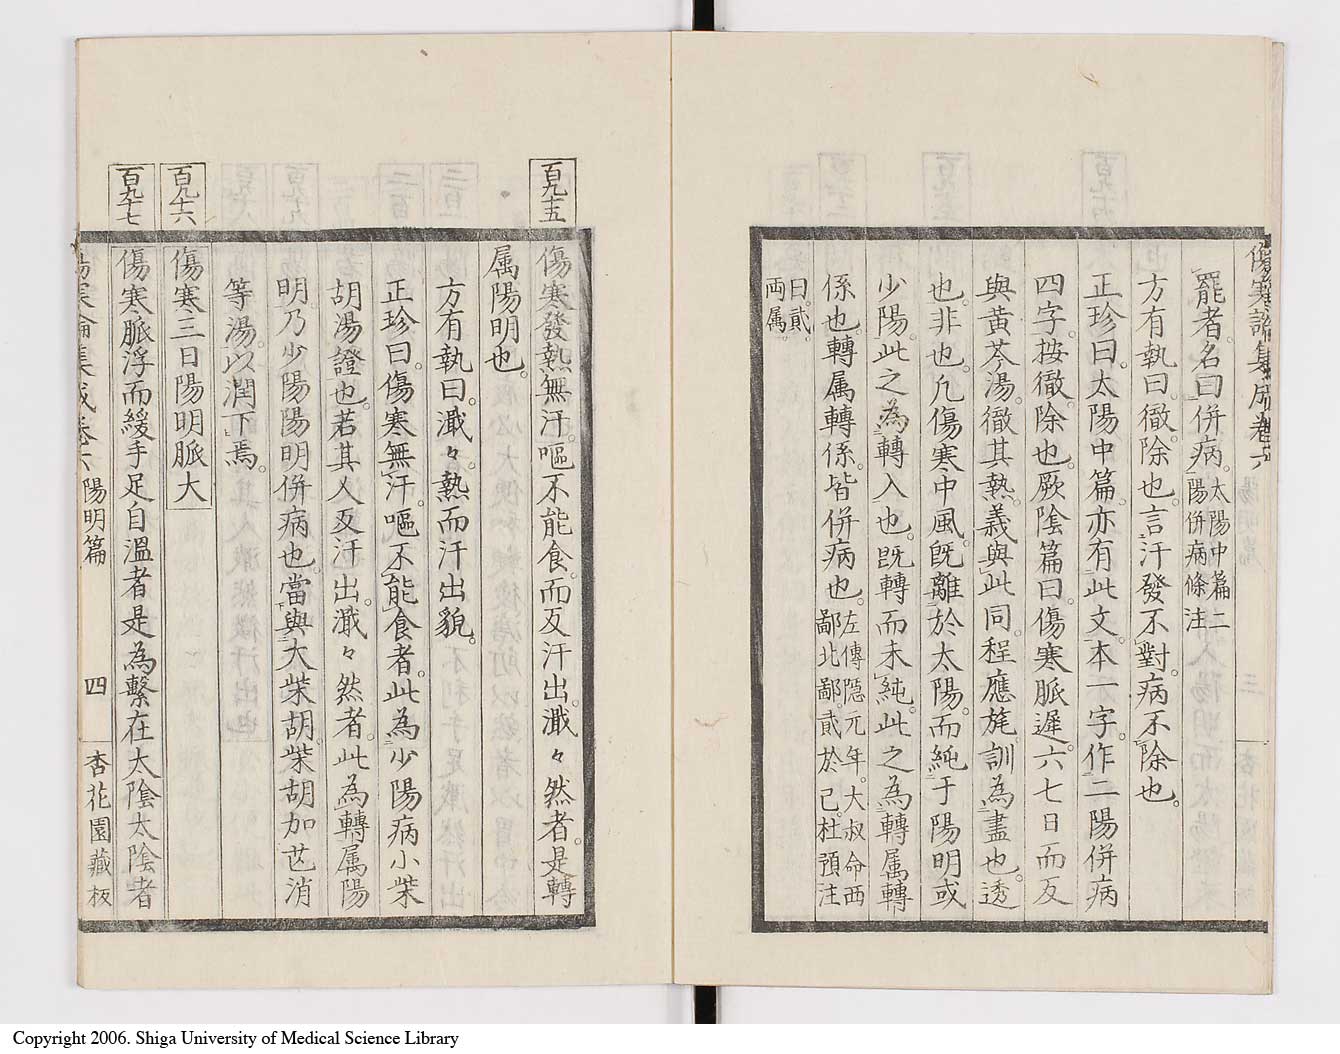 傷寒論集成卷六
三
罷者。名曰併病。太陽中篇二陽併病條注
方有執曰。徹。除也。言汗發不對病不除也。
正珍曰。太陽中篇。亦有此文。本一字。作二陽併病
四字。按徹。除也。厥陰篇曰。傷寒脈遲。六七日而反
與黃芩湯。徹其熱。義與此同。程應旄訓為盡也。透
也。非也。凡傷寒中風。既離於太陽。而純于陽明或
少陽。此之為轉入也。既轉而未純。此之為轉属轉
係也。轉属轉係。皆併病也。左傳隱元年。大叔命西鄙北鄙。貳於己。杜預注
曰。貳。両属。
百九十五
傷寒發熱無汗。嘔不能食。而反汗出。濈々然者。是轉
属陽明也。
方有執曰。濈々。熱而汗出貌。
正珍曰。傷寒無汗。嘔不能食者。此為少陽病小柴
胡湯證也。若其人反汗出。濈々然者。此為轉属陽
明。乃少陽陽明併病也。當與大柴胡。柴胡加芒消
等湯。以潤下焉。
百九十六
傷寒三日陽明脈大
百九十七
傷寒脈浮而緩手足自溫者是為繫在太陰太陰者
傷寒論集成卷六 陽明篇 四 杏花園藏板
Copyright 2006. Shiga University of Medical Science Library